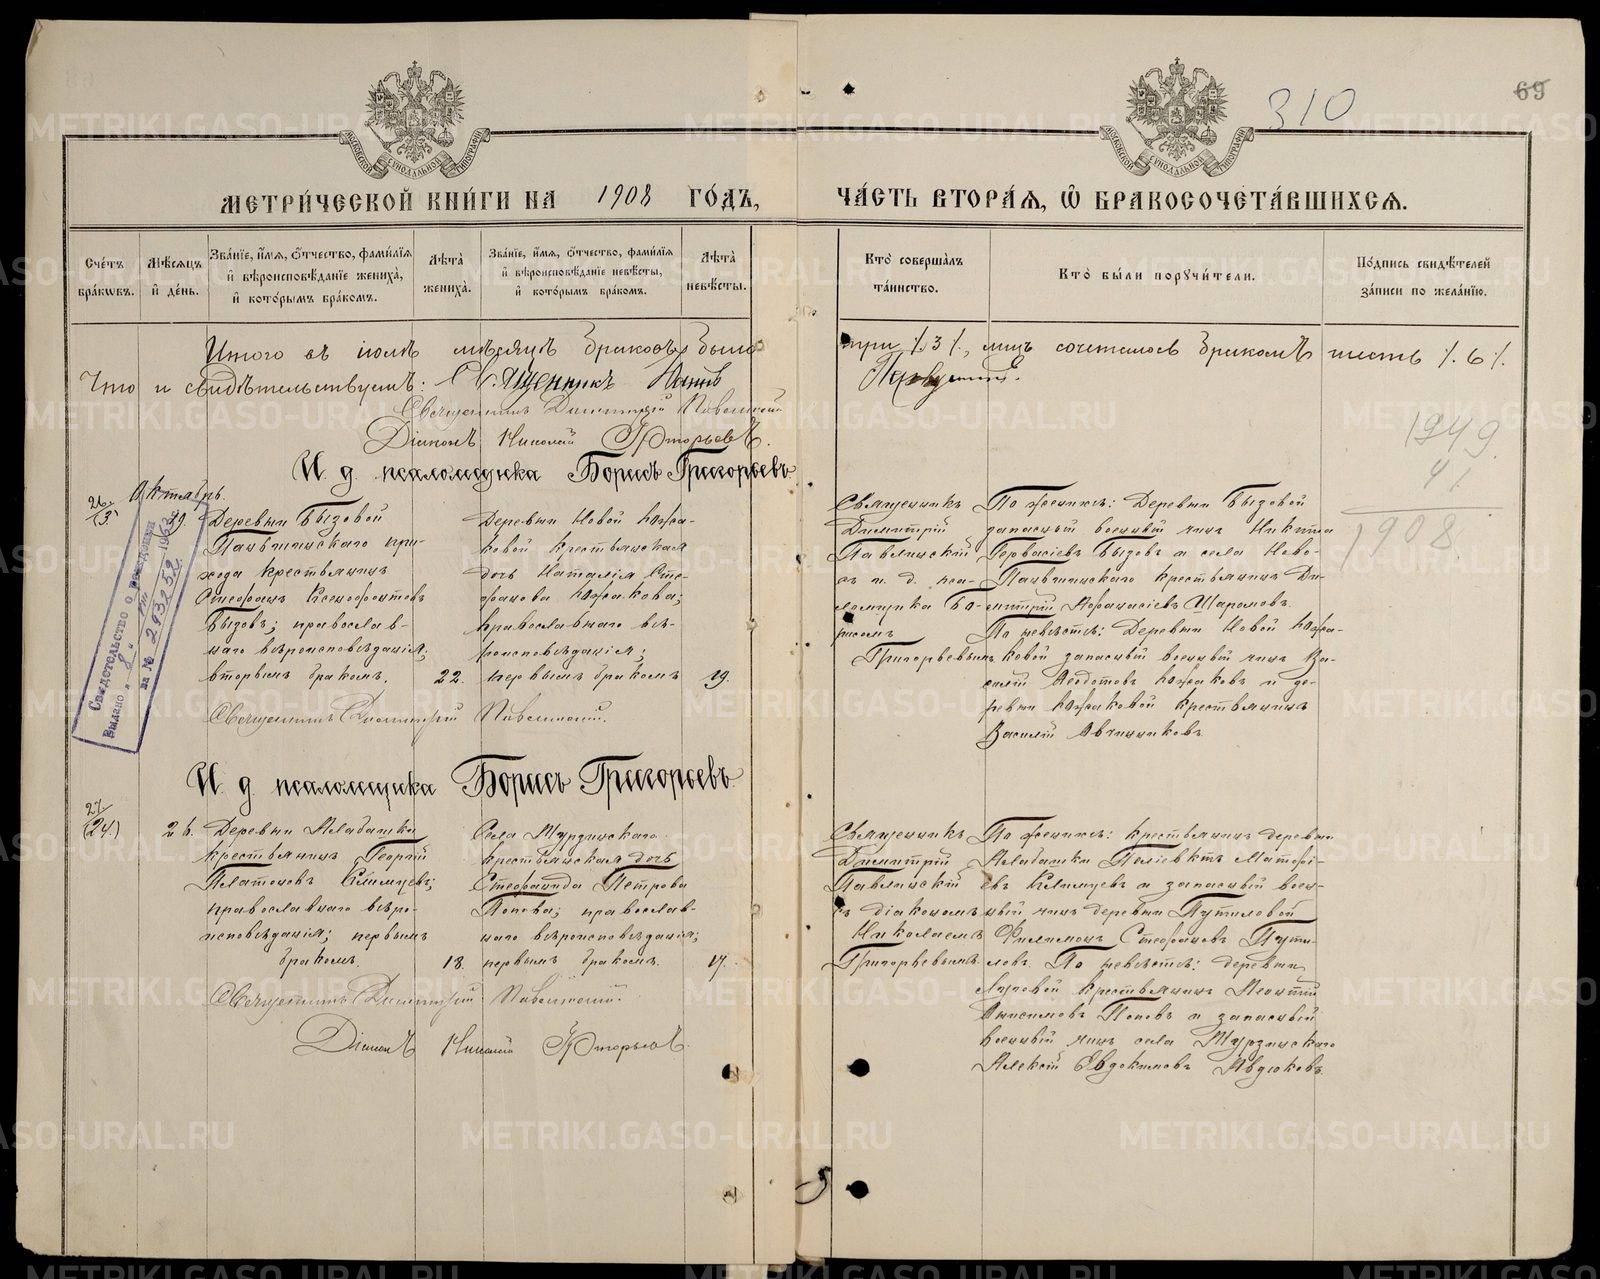 310
69
МЕТРИ́ЧЕСКОЙ КНИ́ГИ НА 1908 ГО́ДЪ,
ЧА́СТЬ ВТОРА́Я, Ѡ БРАКОСОЧЕТА́ВШИХСЯ.
Сче́тъ бра́ковъ.
Мѣ́сяцъ и де́нь.
Зва́нїе, и́мя, ѻ́тчество, фами́лїя и вѣроисповѣ́данїе жениха̀, и кото́рымъ бра́комъ.
Лѣ́та жениха̀.
Зва́нїе, и́мя, ѻ́тчество, фами́лїя и вѣроисповѣ́данїе невѣ́сты, и кото́рымъ бра́комъ.
Лѣ́та невѣ́сты.
Кто̀ соверша́лъ та́инство.
Кто̀ бы́ли поручи́тели.
По́дпись свидѣ́телей за́писи по жела́нїю.
Итого въ іюлѣ мѣсяцѣ браковъ было три /.3/., лицъ сочеталось бракомъ шесть /.6/.
Что и свидѣтельствуемъ: Священникъ
Священникъ Димитрій Павлинскій
Діаконъ Николай Григорьевъ.
И. д. псаломщика Борисъ Григорьевъ
1949
41
1908
Октябрь.
26
(3.)
29.
Деревни Бызовой
Паньшинскаго при-
хода крестьянинъ
Стефанъ Ксенофонтовъ
Бызовъ; православ-
наго вѣроисповѣданія;
вторымъ бракомъ.
22.
Деревни Новой Южа-
ковой крестьянская
дочь Наталія Сте-
фанова Южакова;
православнаго вѣ-
роисповѣданія;
первымъ бракомъ
19.
Священникъ
Димитрій
Павлинскій
съ и. д. пса-
ломщика Бо-
рисомъ
Григорьевымъ
По женихѣ: Деревни Бызовой
запасный военный чинъ Никита
Гервасіевъ Бызовъ и села Ново-
Паньшинскаго крестьянинъ Ди-
митрій Афанасіевъ Шаромовъ.
По невѣстѣ: Деревни Новой Южа-
ковой запасный военный чинъ Ва-
силій Ѳеодотовъ Южаковъ и де-
ревни Южаковой крестьянинъ
Василій Овчинниковъ
Свидетельство о рождении
Выдано „ 8 “
за №
Священникъ Димитрій Павлинскій.
И. д. псаломщика Борисъ Григорьевъ.
27
(24.)
26.
Деревни Алабашки
крестьянинъ Георгій
Платоновъ Климцевъ;
православнаго вѣро-
исповѣданія; первымъ
бракомъ.
18.
Села Мурзинскаго
крестьянская дочь
Стефанида Петрова
Попова; православ-
наго вѣроисповѣданія;
первымъ бракомъ.
17.
Священникъ
Димитрій
Павлинскій
съ діакономъ
Николаемъ
Григорьевымъ
По женихѣ: крестьянинъ деревни
Алабашки Поліевктъ Матѳі-
евъ Климцевъ и запасный воен-
ный чинъ деревни Путиловой
Филимонъ Стефановъ Пути-
ловъ. По невѣстѣ: деревни
крестьянинъ Леонтій
Анисимовъ Поповъ и запасный
военный чинъ села Мурзинскаго
Алексій Евдокимовъ Авдюковъ.
Священникъ Димитрій Павлинскій.
Діаконъ Николай Григорьевъ.
METRIKI.GASO-URAL.RU